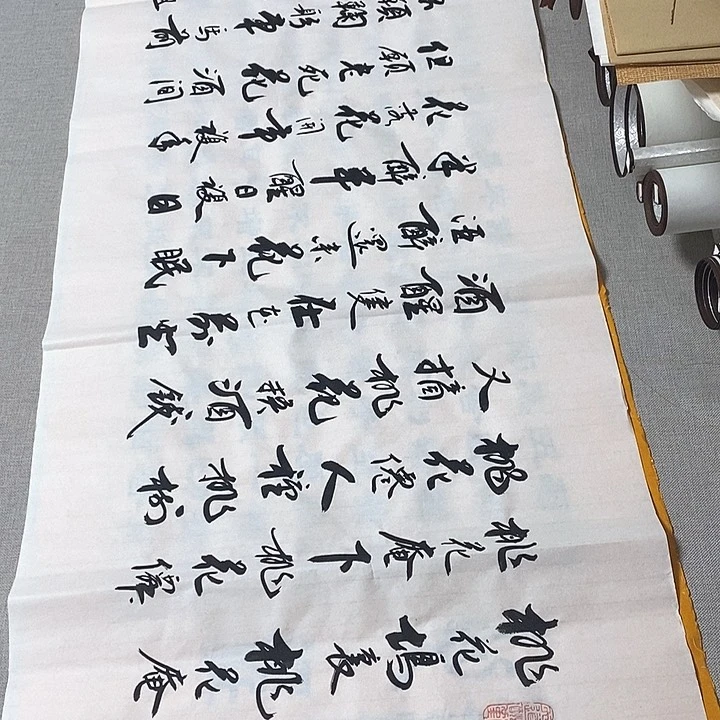 桃花塢裏桃花庵
桃花庵下桃花僊
桃花僊人種桃樹
又摘桃花換酒錢
酒醒在花前坐
酒醉還來花下眠
半醉半醒日復日
花落花開年復年
但願老死花酒間
不願鞠躬車馬前